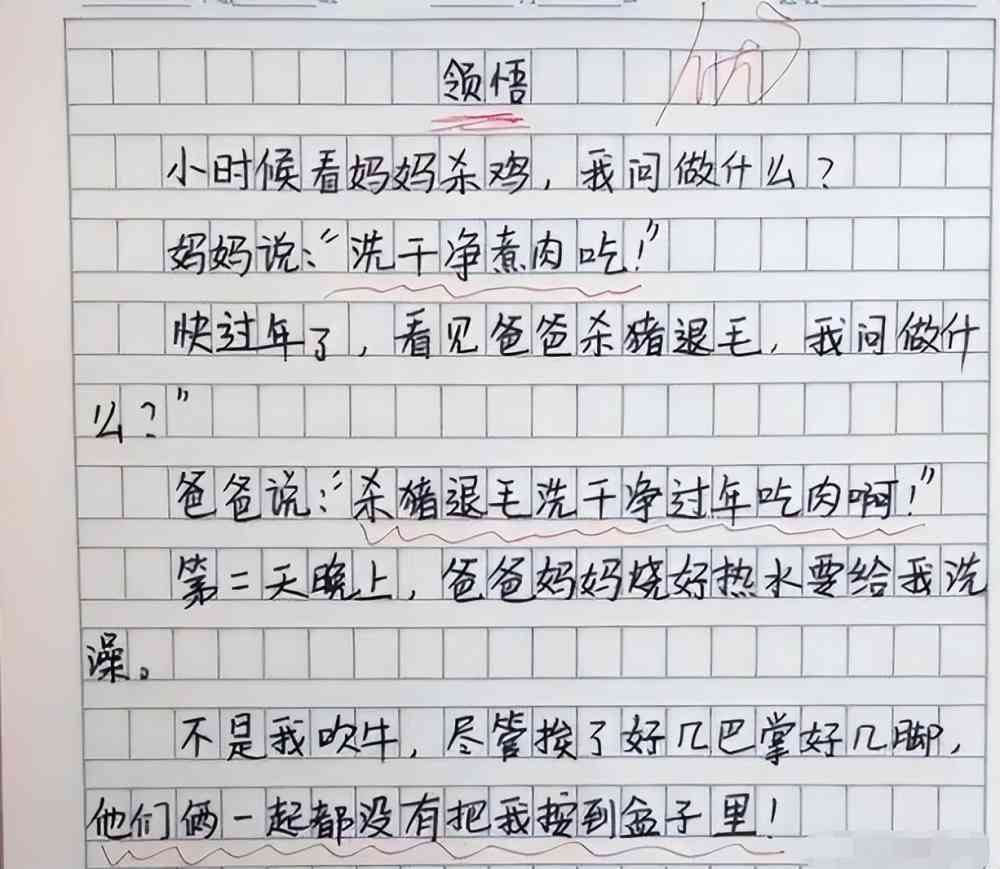 领悟
小时候看妈妈杀鸡，我问做什么？
妈妈说：“洗干净煮肉吃！”
快过年了，看见爸爸杀猪退毛，我问做什
么？”
爸爸说：“杀猪退毛洗干净过年吃肉啊！”
第二天晚上，爸爸妈妈烧好热水要给我洗
澡。
不是我吹牛，尽管挨了好几巴掌好几脚，
他们俩一起都没有把我按到盆子里！